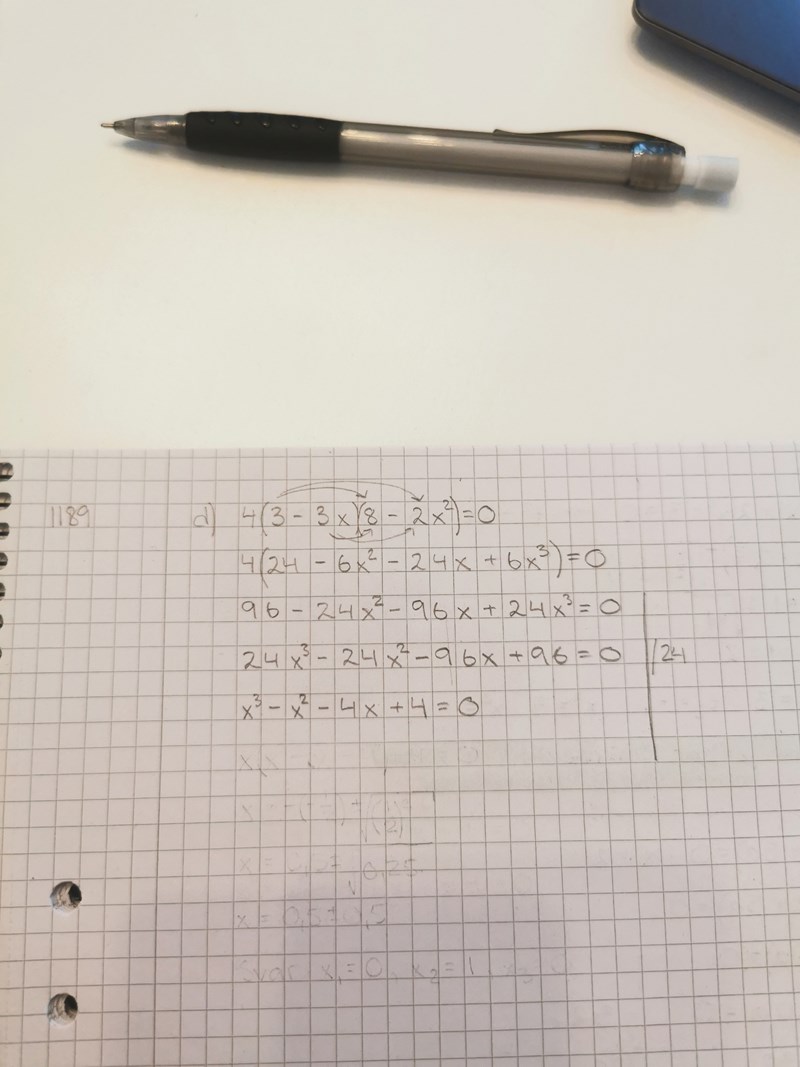 1189 d) 4(3 - 3x)(8 - 2x²) = 0
4(24 - 6x² - 24x + 6x³) = 0
96 - 24x² - 96x + 24x³ = 0
24x³ - 24x² - 96x + 96 = 0 /24
x³ - x² - 4x + 4 = 0
x = 0,5 ± 0,5
Svar x₁ = 0, x₂ = 1